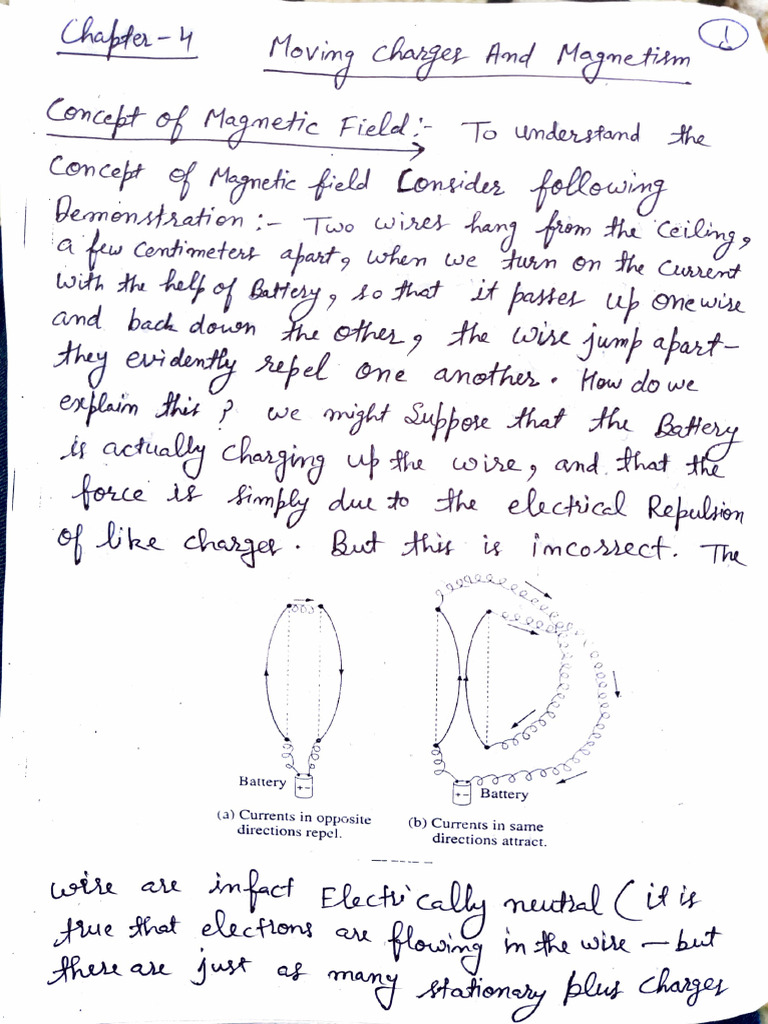 Chapter-4 Moving Charges And Magnetism 1
Concept of Magnetic Field:- To understand the
Concept of Magnetic field Consider following
Demonstration:- Two wires hang from the Ceiling,
a few Centimeters apart, when we turn on the Current
with the help of Battery, so that it passes up one wise
and back down the other, the wise jump apart-
they evidently repel one another. How do we
explain this? we might Suppose that the Battery
is actually Charging up the wire, and that the
force is simply due to the electrical Repulsion
of like charges. But this is incorrect. The
Battery
+ -
(a) Currents in opposite
directions repel.
Battery
+ -
(b) Currents in same
directions attract.
wise are infact Electrically neutral (it is
true that electrons are flowing in the wise - but
there are just as many stationary plus Charges